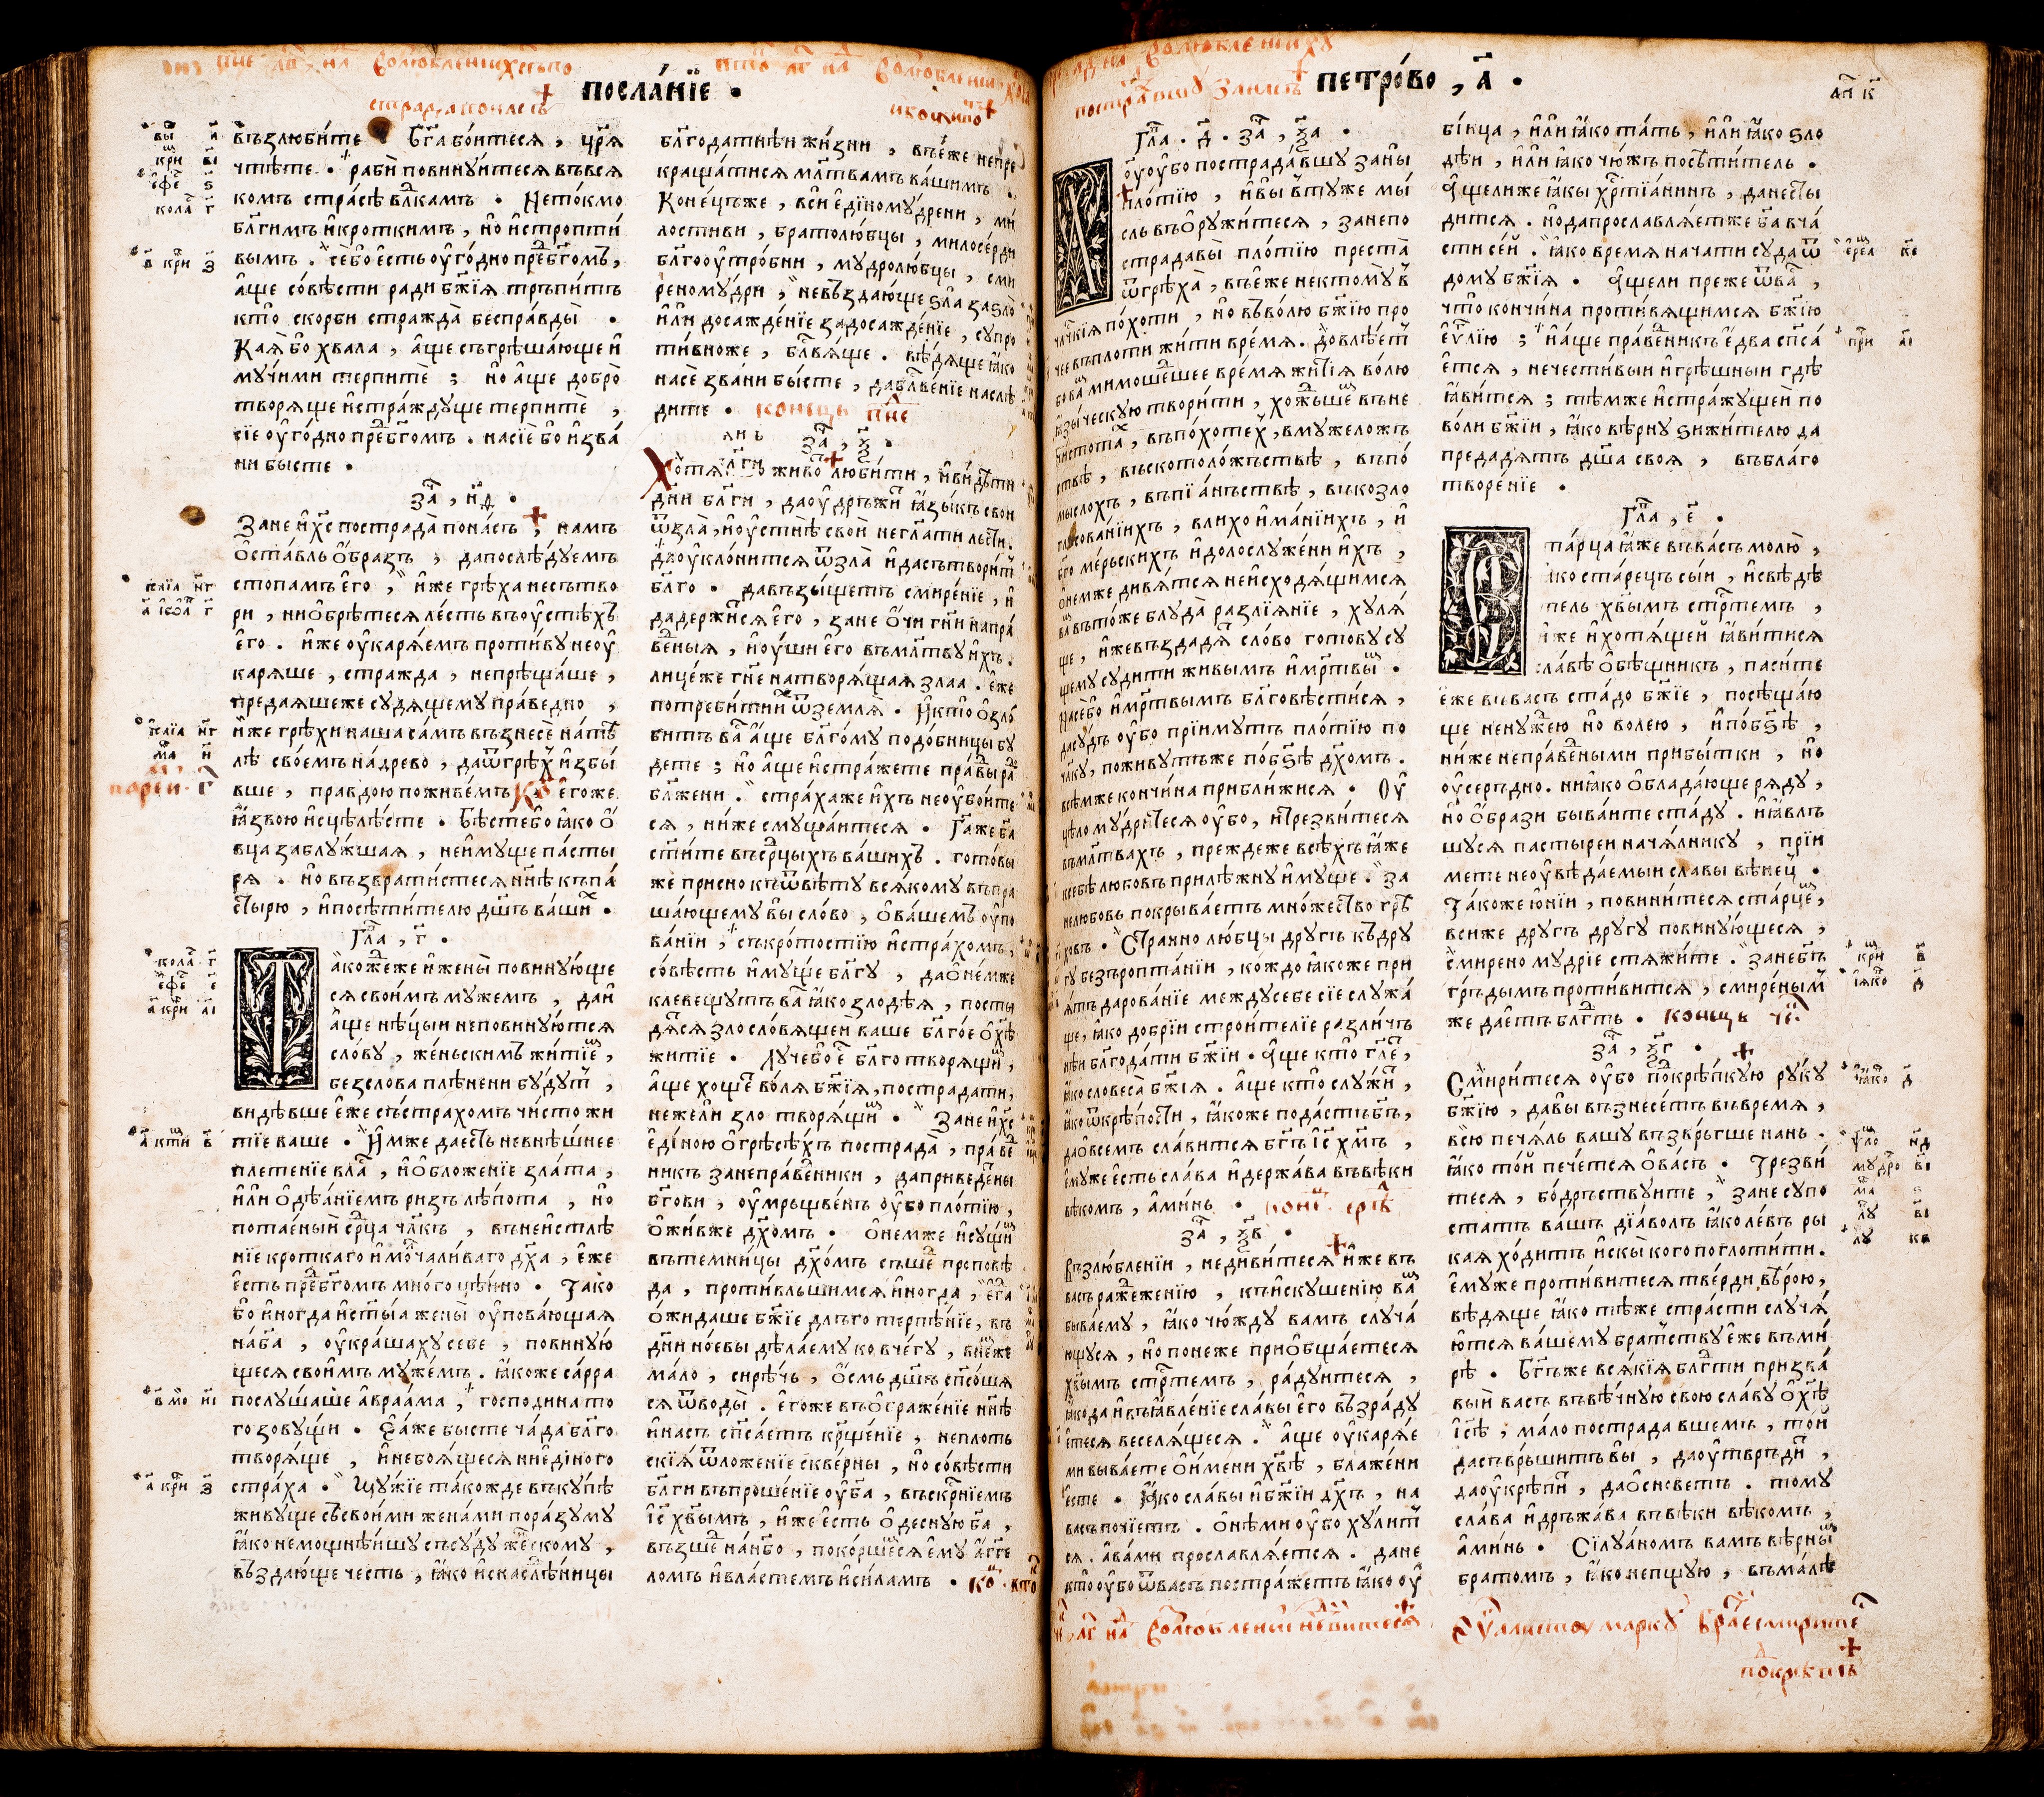 посла́нїе •
възлюби́те • б҃га бо́итеся , цр҃я
чтѣ́те • раби̑ повину́итеся въвся
комъ стра́сѣ влⷣкамъ • Нето́кмо
бл҃гимъ и҆кро́ткимъ , но̑ и҆стропти́
вымъ . се́бо̑ е҆сть оу҆го́дно преⷣбг҃омъ ,
а҆́ще со́вѣсти ради бж҃їя тръпи́тъ
кто̑ скорби стражда̀ беспра́вды̀ •
Кая̀ бо̑ хвала , а҆́ще съгрѣша́юще и҆
му́чими терпитѐ ; но̑ а҆́ще добро̀
творяще и҆стра́ждуще терпитѐ ,
сїе оу҆го́дно преⷣбг҃омъ . насїѐ бо̑ и҆зва́
ни бы́сте •
заⷱ҇ , н҃д •
Занѐ и҆хс҃ пострада̀ пона́съ , намъ
о҆ста́вль о҆́бразъ , дапослѣ́дуемъ
стопа́мъ е҆го̀ , и҆́же грѣха̀ несътво
ри , нио҆брѣ́теся ле́сть въоу҆стѣ́хъ
е҆го̀ . и҆́же оу҆каря́емъ проти́ву неоу҆
каряше , стражда , непрѣща́ше ,
предаяшеже судящему пра́ведно ,
и҆́же грѣхи̑ наша са́мъ възнесѐ на́тѣ
лѣ свое́мъ на́древо , даѿгрѣ́хъ и҆збы́
вше , правдою поживе́мъ . е҆го́же
ꙗ҆́звою и҆сцѣлѣ́сте • Бѣ́сте бо̑ ꙗ҆́ко о҆
вца заблу́жшая , неи҆му́ще па́сты
ря . но̑ възврати́стеся нн҃ѣ къпа́
стырю , и҆посѣти́телю дш҃ъ ва́шиⷯ •
Глⷡ҇а , г҃ •
Та́коже́же и҆жены̀ повину́юще
ся свои́мъ му́жемъ , даи҆
а҆́ще нѣ́цыи неповину́ются
сло́ву , же́ньскимъ житїеⷨ ,
безслова плѣнени бу́дутъ ,
видѣвше е҆́же състрахомъ чи́сто жи
тїе ваше • И҆́мже да е́сть невнѣ́шнее
плете́нїе вла́съ , и҆о҆бложе́нїе зла́та ,
и҆ли̑ о҆дѣ́анїемъ ризъ лѣпота , но̑
потае́ный срⷣца чл҃къ , въне́и҆стлѣ
нїе кро́ткаго и҆молчали́ваго дх҃а , е҆́же
е҆сть преⷣбг҃омъ мно́гоцѣ́нно • Тако
бо̑ и҆ногда и҆ст҃ы́а жены̀ оу҆пова́ющая
на́бг҃а , оу҆краша́ху себе , повину́ю
щеся свои́мъ муже́мъ . ꙗ҆́коже са́рра
послу́шаше а҆враа́ма , господина то
го зову́щи • Е҆я́же бы́сте ча́да бл҃го
творя́ще , и҆небоя́щеся ние҆ди́ного
стра́ха • Му́жїе та́кожде въку́пѣ
живу́ще съсвои́ми жена́ми пора́зуму
ꙗ҆́ко немощнѣ́ишу съсу́ду же́нскому ,
възда́юще че́сть , ꙗ҆́ко и҆снаслѣ́ницы
бл҃года́тнѣи жи́зни , въе́же непре
краща́тися мл҃твамъ ва́шимъ .
Коне́цъже , вси̑ е҆ди́ному́дрени , ми́
лостиви , братолю́бцы , милосе́рди
бл҃гооу҆тро́бни , мудролю́бцы , сми
реному́дри , невъзда́юще ѕла̀ заѕло̀
и҆ли̑ досажде́нїе задосажде́нїе , супро
ти́вноже , блⷭ҇вя́ще . вѣ́дяще ꙗ҆́ко
насѐ зва́ни бы́сте , даблⷭ҇ве́нїе наслѣ́
дите • конецъ пⷩ҇е
заⷱ҇ , н҃ •
Хотя́и живо́тъ люби́ти , и҆ви́дѣти
дни̑ бл҃ги , даоу҆дръжи́тъ ꙗ҆зы́къ свои
ѿзла̀ , и҆оу҆стнѣ̀ свои̑ негл҃ати льсти̑ .
даоу҆клони́тся ѿзла̀ и҆дасътвори́тъ
бл҃го • давъзы́щетъ смире́нїе , и҆
дадержи́тся е҆го̀ , зане о҆́чи гн҃и напра́
ве́дныя , и҆оу́ши е҆го̀ въмл҃тву и҆́хъ .
лице́же гн҃е натворя́щая злаа . е҆́же
потреби́ти и҆́хъ ѿземля̀ • И҆кто̑ о҆зло́
битъ ва́съ а҆́ще бл҃го́му подо́бницы бу́
дете ; но̑ а҆́ще и҆стра́жете пра́вды ра́ди
бл҃жени . стра́хаже и҆́хъ неоу҆бо́ите
ся , ни́же смуща́итеся • Га́же бг҃а
ст҃и́те въсрⷣцы́хъ ва́шихъ . гото́ви
же при́сно къѿвѣ́ту вся́кому въпра
ша́ющему вы̀ сло́во , о҆ва́шемъ оу҆по
ва́нїи , съкро́тостїю и҆стра́хомъ ,
со́вѣсть и҆му́ще бл҃гу , дао҆не́мже
клеве́щутъ ва́съ ꙗ҆́ко злодѣ́я , посты
дя́тся злосло́вящеи ва́ше бл҃го́е о҆хс҃ѣ
житїе • Лу́чебо̑ е҆сть бл҃го творя́щимъ ,
а҆́ще хо́щетъ во́ля бж҃їя , пострада́ти ,
не́жели̑ зло творя́щимъ • Зане и҆хс҃
е҆ди́ною о҆грѣсѣ́хъ пострада̀ , пра́ве
никъ занепра́ведники , даприведе́тъ ны
бг҃ови , оу҆мръщве́нъ оу҆бо пло́тїю ,
о҆жи́вже дх҃омъ • о҆не́мже и҆су́щимъ
вътемни́цы дх҃о́мъ съше́дъ проповѣ
да , проти́вльшимся и҆ногда , е҆гда
о҆жида́ше бж҃їе дльго терпѣ́нїе , въ
дни̑ но́евы дѣ́лаему ковче́гу , вне́мже
ма́ло , сирѣ́чь , о҆́смь дш҃ъ спⷭ҇о́шя
ся ѿводы̀ . е҆го́же въо҆бра́женїе нн҃ѣ
и҆на́съ спⷭ҇а́етъ крⷭ҇ще́нїе , непло́ть
скїя ѿложе́нїе скве́рны , но̑ со́вѣсти
бл҃ги въпроше́нїе оу҆бг҃а , въскр҃нїемъ
і҆с҃ хв҃ымъ , и҆́же е҆сть о҆десну́ю бг҃а ,
възше́дъ на́нбо , поко́ршеся е҆му̀ а҆́гге
ломъ и҆вла́стемъ и҆си́ламъ •
петро́во , а҃ •
Глⷡ҇а . д҃ . заⷱ҇ , ѯ҃а •
Хоу҆ оу҆бо пострада́вшу заны̀
пло́тїю , и҆вы̀ въту́же мы́
сль въо҆ружи́теся , занепо
страда́вы̀ пло́тїю преста̀
ѿгрѣха̀ , въе́же некто́му въ
чл҃чкїя по́хоти , но̑ въво́лю бж҃їю про
чее въпло́ти жи́ти вре́мя . Довлѣ́етъ
бо ва́мъ мимоше́дшее вре́мя житїя̀ во́лю
ꙗ҆зы́ческую твори́ти , хо́жьшемъ въне
чистота́хъ , въпо́хотехъ , вмуже́ложъ
ствѣ , въскотоло́жъствѣ , въпо́
мыслохъ , въпїа́нъствѣ , въкозло
гласова́нїихъ , влихои҆ма́нїихъ , и҆
бг҃оме́рьскихъ и҆долослуже́ни и҆хъ ,
о҆немже дивя́тся неи҆сходя́щимся
ва́мъ вто́же блу́да̀ разлїя́нїе , хуля́
ще , и҆́жевъздадя́тъ сло́во гото́ву су
щему суди́ти живы́мъ и҆мр҃твымъ .
насе́бо̑ и҆мр҃твымъ бл҃говѣсти́ся ,
дасу́дъ оу҆бо прїи́мутъ пло́тїю по
чл҃ку , поживу́тъже побг҃ѣ дх҃омъ .
всѣ́мже кончи́на прибли́жися • Оу҆
цѣломудри́теся оу҆бо , и҆трезви́теся
въмл҃твахъ , преждеже всѣ́хъ ꙗ҆́же
ксебѣ̀ любо́въ прилѣ́жну и҆му́ще . за
нелюбо́въ покрыва́етъ мно́жество грѣ
хо́въ • Странно лю́бцы дру́гъ къдру
гу безъропта́нїи , ко́ждо ꙗ҆́коже при
я́тъ дарова́нїе междусебе сїе служа́
ще , ꙗ҆́ко добрїи строи́телїе разли́чъ
нѣи бл҃года́ти бж҃їи . А҆́ще кто̑ гл҃етъ ,
ꙗ҆́ко словеса̀ бж҃їя . а҆́ще кто̑ слу́житъ ,
ꙗ҆́ко ѿкрѣ́пости , ꙗ҆́коже пода́стъ бг҃ъ ,
дао҆всемъ сла́вится бг҃ъ і҆с҃ хм҃ъ ,
е҆му́же е҆сть сла́ва и҆держа́ва въвѣ́ки
вѣ́комъ , а҆ми́нь •
заⷱ҇ , ѯ҃в •
Възлю́бленїи , недиви́теся и҆́же въ
васъ раже́женїю , къи҆скуше́нїю ва́мъ
быва́ему , ꙗ҆́ко чю́жду ва́мъ случа́
ющуся , но̑ поне́же прио҆бща́етеся
хв҃ымъ стрⷭ҇темъ , ра́дуитеся ,
ꙗ҆́ко да и҆въꙗ҆вле́нїе сла́вы е҆го̀ възра́ду
е҆теся веселя́щеся . а҆́ще оу҆каря́е
ми быва́ете о҆и́мени хв҃ѣ , блаже́ни
е҆сте • Ꙗ҆́ко сла́вы и҆бж҃їи дх҃ъ , на
васъ почїе́тъ . о҆нѣ́ми оу҆бо ху́литъ
ся . а҆ва́ми прославля́ется . дане
кто̑ оу҆бо ѿва́съ постра́жетъ ꙗ҆́ко оу҆
бі́ица , и҆ли̑ ꙗ҆́ко та́ть , и҆ли̑ ꙗ҆́ко ѕло
дѣ́и , и҆ли̑ ꙗ҆́ко чю́жъ посѣти́тель .
А҆́щелиже ꙗ҆́кы хрⷭ҇тїа́нинъ , данесты
дится . но̑дапрославля́етже бг҃а вча́
сти се́й . ꙗ҆́ко время нача́ти суда̀ ѿ
дому бж҃їя • А҆́щели преже ѿва́съ ,
что̑ кончи́на проти́вящимся бж҃їю
е҆ѵⷢ҇лїю ; и҆а҆́ще пра́веникъ е҆два̀ спⷭ҇а́
е҆тся , нечести́выи и҆грѣ́шныи гдѣ̀
ꙗ҆ви́тся ; тѣ́мже и҆стра́жущеи по
во́ли бж҃їи , ꙗ҆́ко вѣ́рну зижи́телю да
предадя́тъ дш҃а своя , въбла́го
творе́нїе •
Глⷡ҇а , е҃ •
Ста́рца ꙗ҆́же въва́съ молю̀ ,
ꙗ҆́ко ста́рецъ сы́и , и҆свѣдѣ́
тель хв҃ымъ стрⷭ҇темъ ,
и҆́же и҆хотя́щей ꙗ҆ви́тися
сла́вѣ о҆бѣ́щникъ , паси́те
е҆́же въва́съ ста́до бж҃їе , посѣща́ю
ще нену́жею но̑ волею , и҆по́бг҃ѣ ,
ни́же непра́ведными прибы́тки , но̑
оу҆се́рдно . ни́ꙗко о҆блада́юще ря́ду ,
но̑ о҆́брази быва́ите ста́ду . и҆ꙗ҆́вль
шуся пастыреи нача́лнику , прїи
мете неоу҆вѣда́емыи сла́вы вѣне́цъ •
Та́коже ю҆́нїи , повини́теся ста́рцемъ ,
всиже дру́гъ дру́гу повину́ющеся ,
смирено му́дрїе стяжи́те . занебг҃ъ
гръдымъ проти́вится , смире́нымъ
же дае́тъ блг҃ть • конецъ
заⷱ҇ , ѯ҃г •
Смири́теся оу҆бо поⷣкрѣ́пкую ру́ку
бж҃їю , давы̀ възнесе́тъ въвремя ,
всю̀ печя́ль вашу възвръ́гше нань .
ꙗ҆́ко то́й пече́тся о҆ва́съ • Трезви́
теся , бо́дръствуите , зане супо
ста́тъ ва́шъ дїа́волъ ꙗ҆́ко ле́въ ры
кая хо́дитъ и҆скы̀ кого поглоти́ти .
е҆му́же проти́витеся тве́рди вѣ́рою ,
вѣдяще ꙗ҆́ко тѣ́же стра́сти случя́
ются ва́шему бра́тству е҆́же въми́
рѣ • Бг҃ъже вся́кїя блг҃ти призва́
вый васъ въвѣ́чную свою сла́ву о҆хс҃ѣ
і҆с҃ѣ , ма́ло пострада вшемъ , то́й
дасъвръши́тъ вы̀ , даоу҆твръди́тъ ,
даоу҆крѣпи́тъ , дао҆снове́тъ . тому
сла́ва и҆дръжа́ва въвѣ́ки вѣ́комъ ,
а҆ми́нь • Силуа́номъ ва́мъ вѣ́рнымъ
бра́томъ , ꙗ҆́ко непщу́ю , въма́лѣ